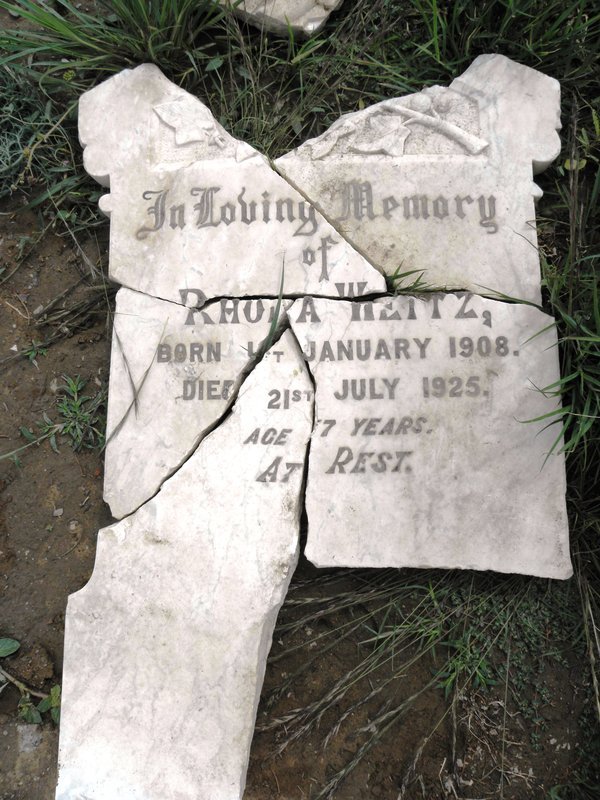 In Loving Memory
of
RHODA WEITZ,
BORN 1ST JANUARY 1908.
DIED 21ST JULY 1925.
AGE 17 YEARS.
AT REST.